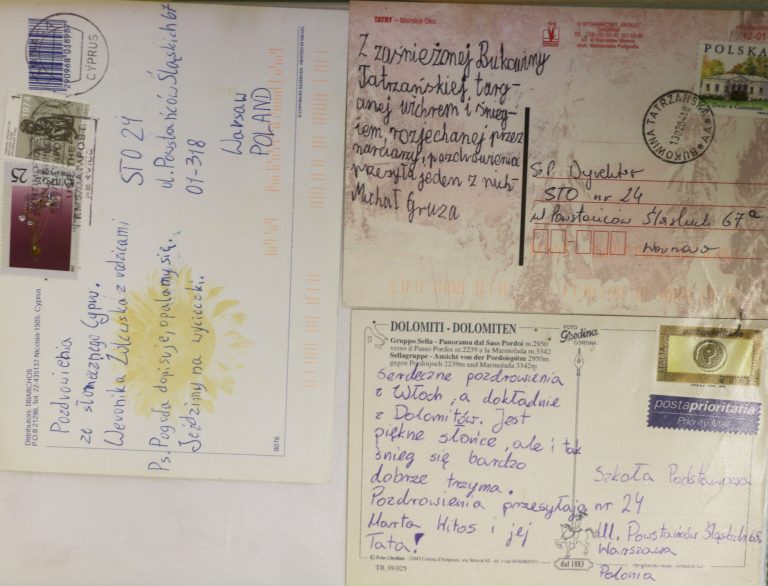 CYPRUS
25
STO 24
ul. Powstańców Śląskich 67
01-318
Warsaw
POLAND
Pozdrowienia
ze słonecznego Cypru.
Weronika Zalewska z rodzicami
Ps. Pogoda dopisuje, opalamy się.
Jeździmy na wycieczki.
Distribution: TRIARCHOS
P.O.B 21296, Tel. 22-435137 Nicosia 1506, Cyprus
8076
TATRY – Morskie Oko.
12-01
POLSKA
BUKOWINA TATRZAŃSKA
Z zaśnieżonej Bukowiny
Tatrzańskiej targ-
anej wichrem i śnieg-
iem, rozjechanej przez
narciarzy, pozdrowienia
przesyła jeden z nich
Michał Gruza
Sz.P. Dyrektor
STO nr 24
ul. Powstańców Śląskich 67a
Warszawa
DOLOMITI - DOLOMITEN
Gruppo Sella - Panorama dal Sass Pordoi m.2950
verso il Passo Pordoi m.2239 e la Marmolada m.3342
Sellagruppe - Ansicht von der Pordoispitze 2950m
gegen Pordoijoch 2239m und Marmolada 3342m
FOTO
Ghedina
CORTINA
postaprioritaria
Priority Mail
Serdeczne pozdrowienia
z Włoch, a dokładnie
z Dolomitów. Jest
piękne słońce, ale i tak
śnieg się bardzo
dobrze trzyma.
Pozdrowienia przesyłają
Marta Witos i jej
Tata!
Szkoła Podstawowa
nr 24
Ul. Powstańców Śląskich
Warszawa
Polonia
dal 1883
TR 39.025